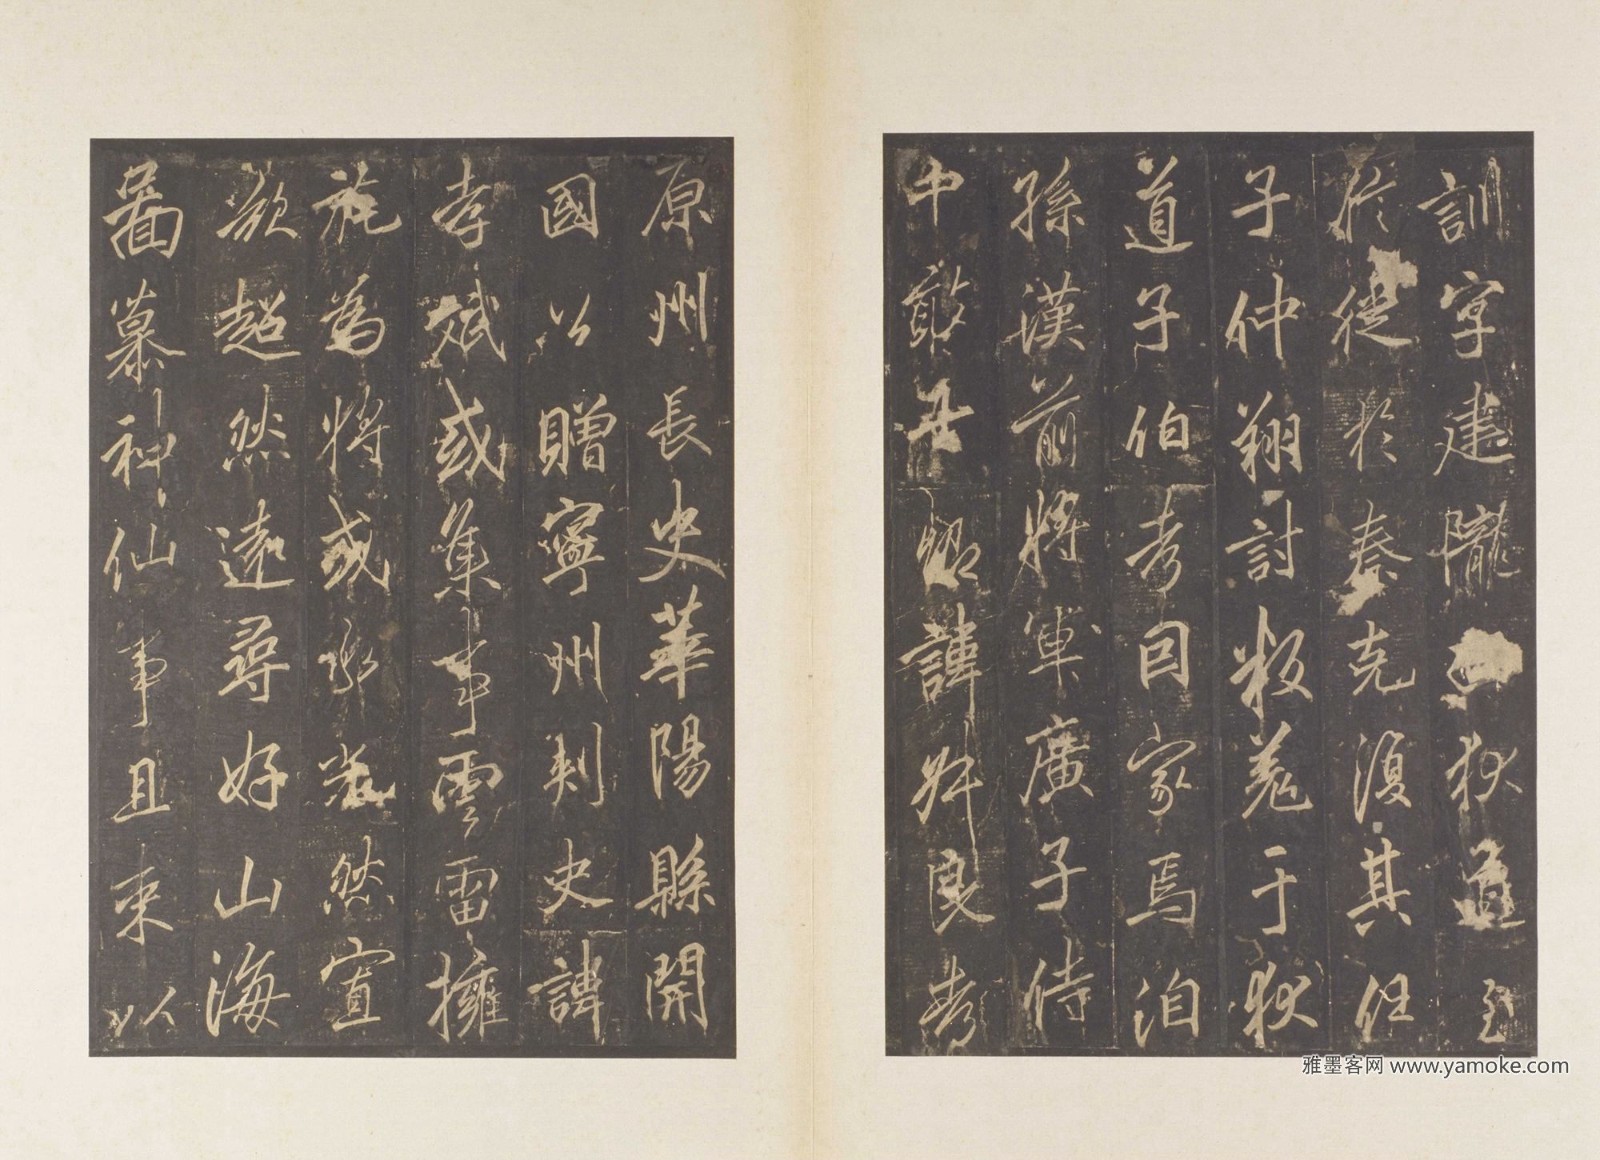 訓字建隴西狄道至
於徙於秦克復其任
子仲翔討叛羌于狄
道子伯考因家焉洎
孫漢前將軍廣子侍
中敢昭諱良考
原州長史華陽縣開
國公贈寧州刺史諱
孝斌或集事雲雷擁
旄為將或然宣
超然遠尋好山海
圖慕神仙事且束以
雅墨客网 www.yamoke.com